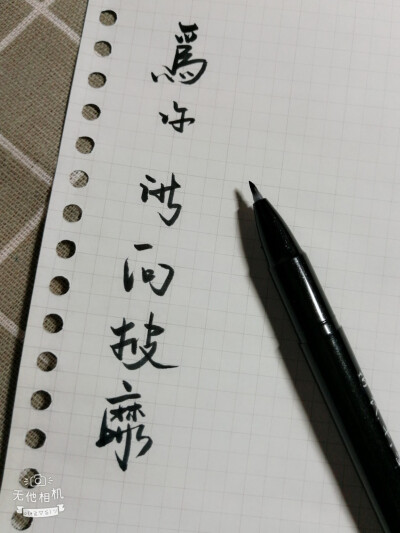 爲你所向披靡
无他相机